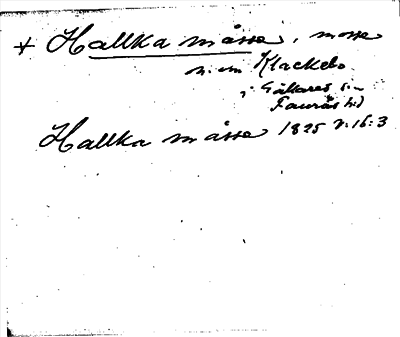 + Hallka måsse, mosse
n. om Klackebo
i Gällared sn
Faurås hd
Hallka måsse 1825 v. 16:3